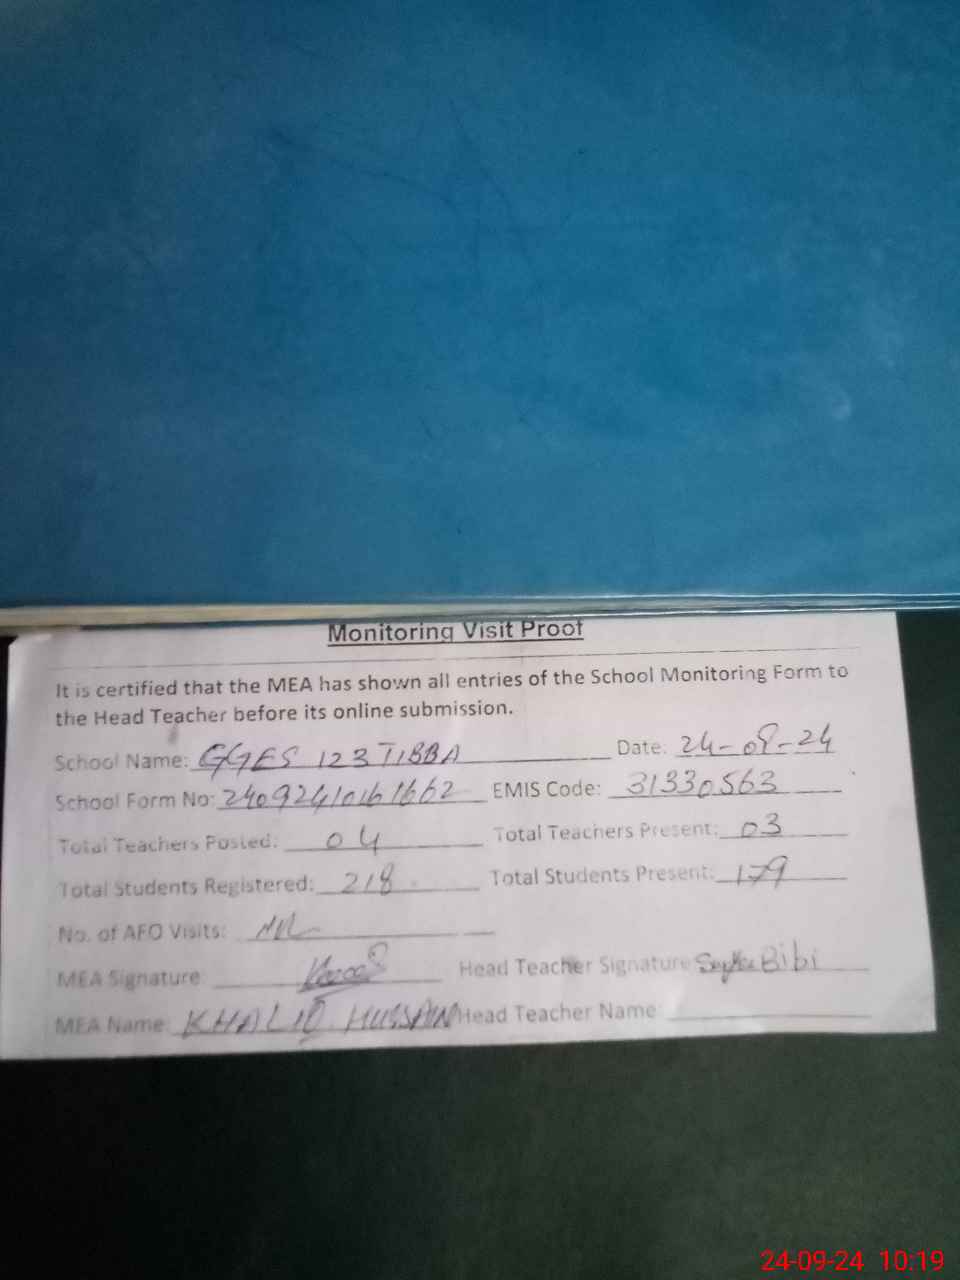 Monitoring Visit Proof
It is certified that the MEA has shown all entries of the School Monitoring Form to
the Head Teacher before its online submission.
School Name: GGES 123 TIBBA Date: 24-09-24
School Form No: 24092410161662 EMIS Code: 31330563
Total Teachers Posted: 04 Total Teachers Present: 03
Total Students Registered: 218 Total Students Present: 179
No. of AFO Visits: NIL
MEA Signature Head Teacher Signature Bibi
MEA Name: KHALIQ HUSSAIN Head Teacher Name
24-09-24 10:19